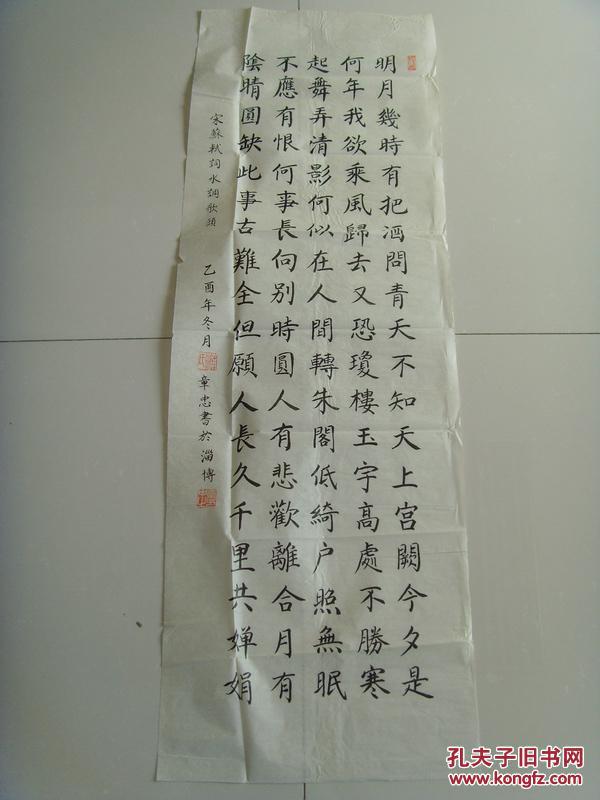 明月幾時有把酒問青天不知天上宮闕今夕是
何年我欲乘風歸去又恐瓊樓玉宇高處不勝寒
起舞弄清影何似在人間轉朱閣低綺户照無眠
不應有恨何事長向别時圓人有悲歡離合月有
陰晴圓缺此事古難全但願人長久千里共嬋娟
宋蘇軾詞水調歌頭
乙酉年冬月
章忠書於淄博
孔夫子旧书网
www.kongfz.com